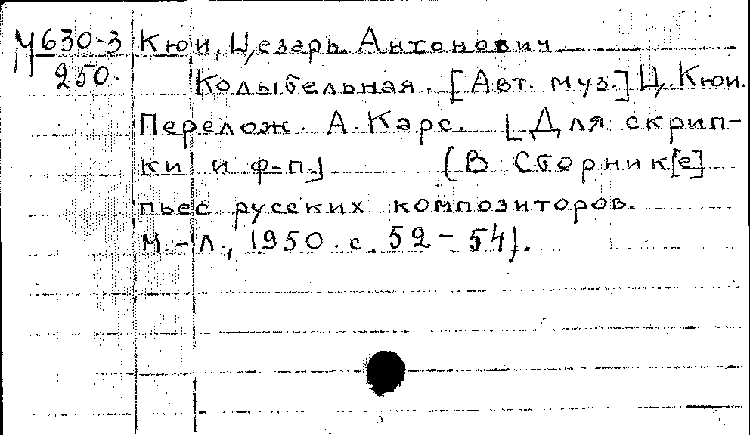 М630-3 Кюи, Цезарь Антонович
250. Колыбельная. [Авт. муз.] Ц. Кюи.
Перелож. А. Карс. [Для скрип-
ки и ф-п.] (В Сборник[е]
пьес русских композиторов.
М.-Л., 1950. с. 52-54).